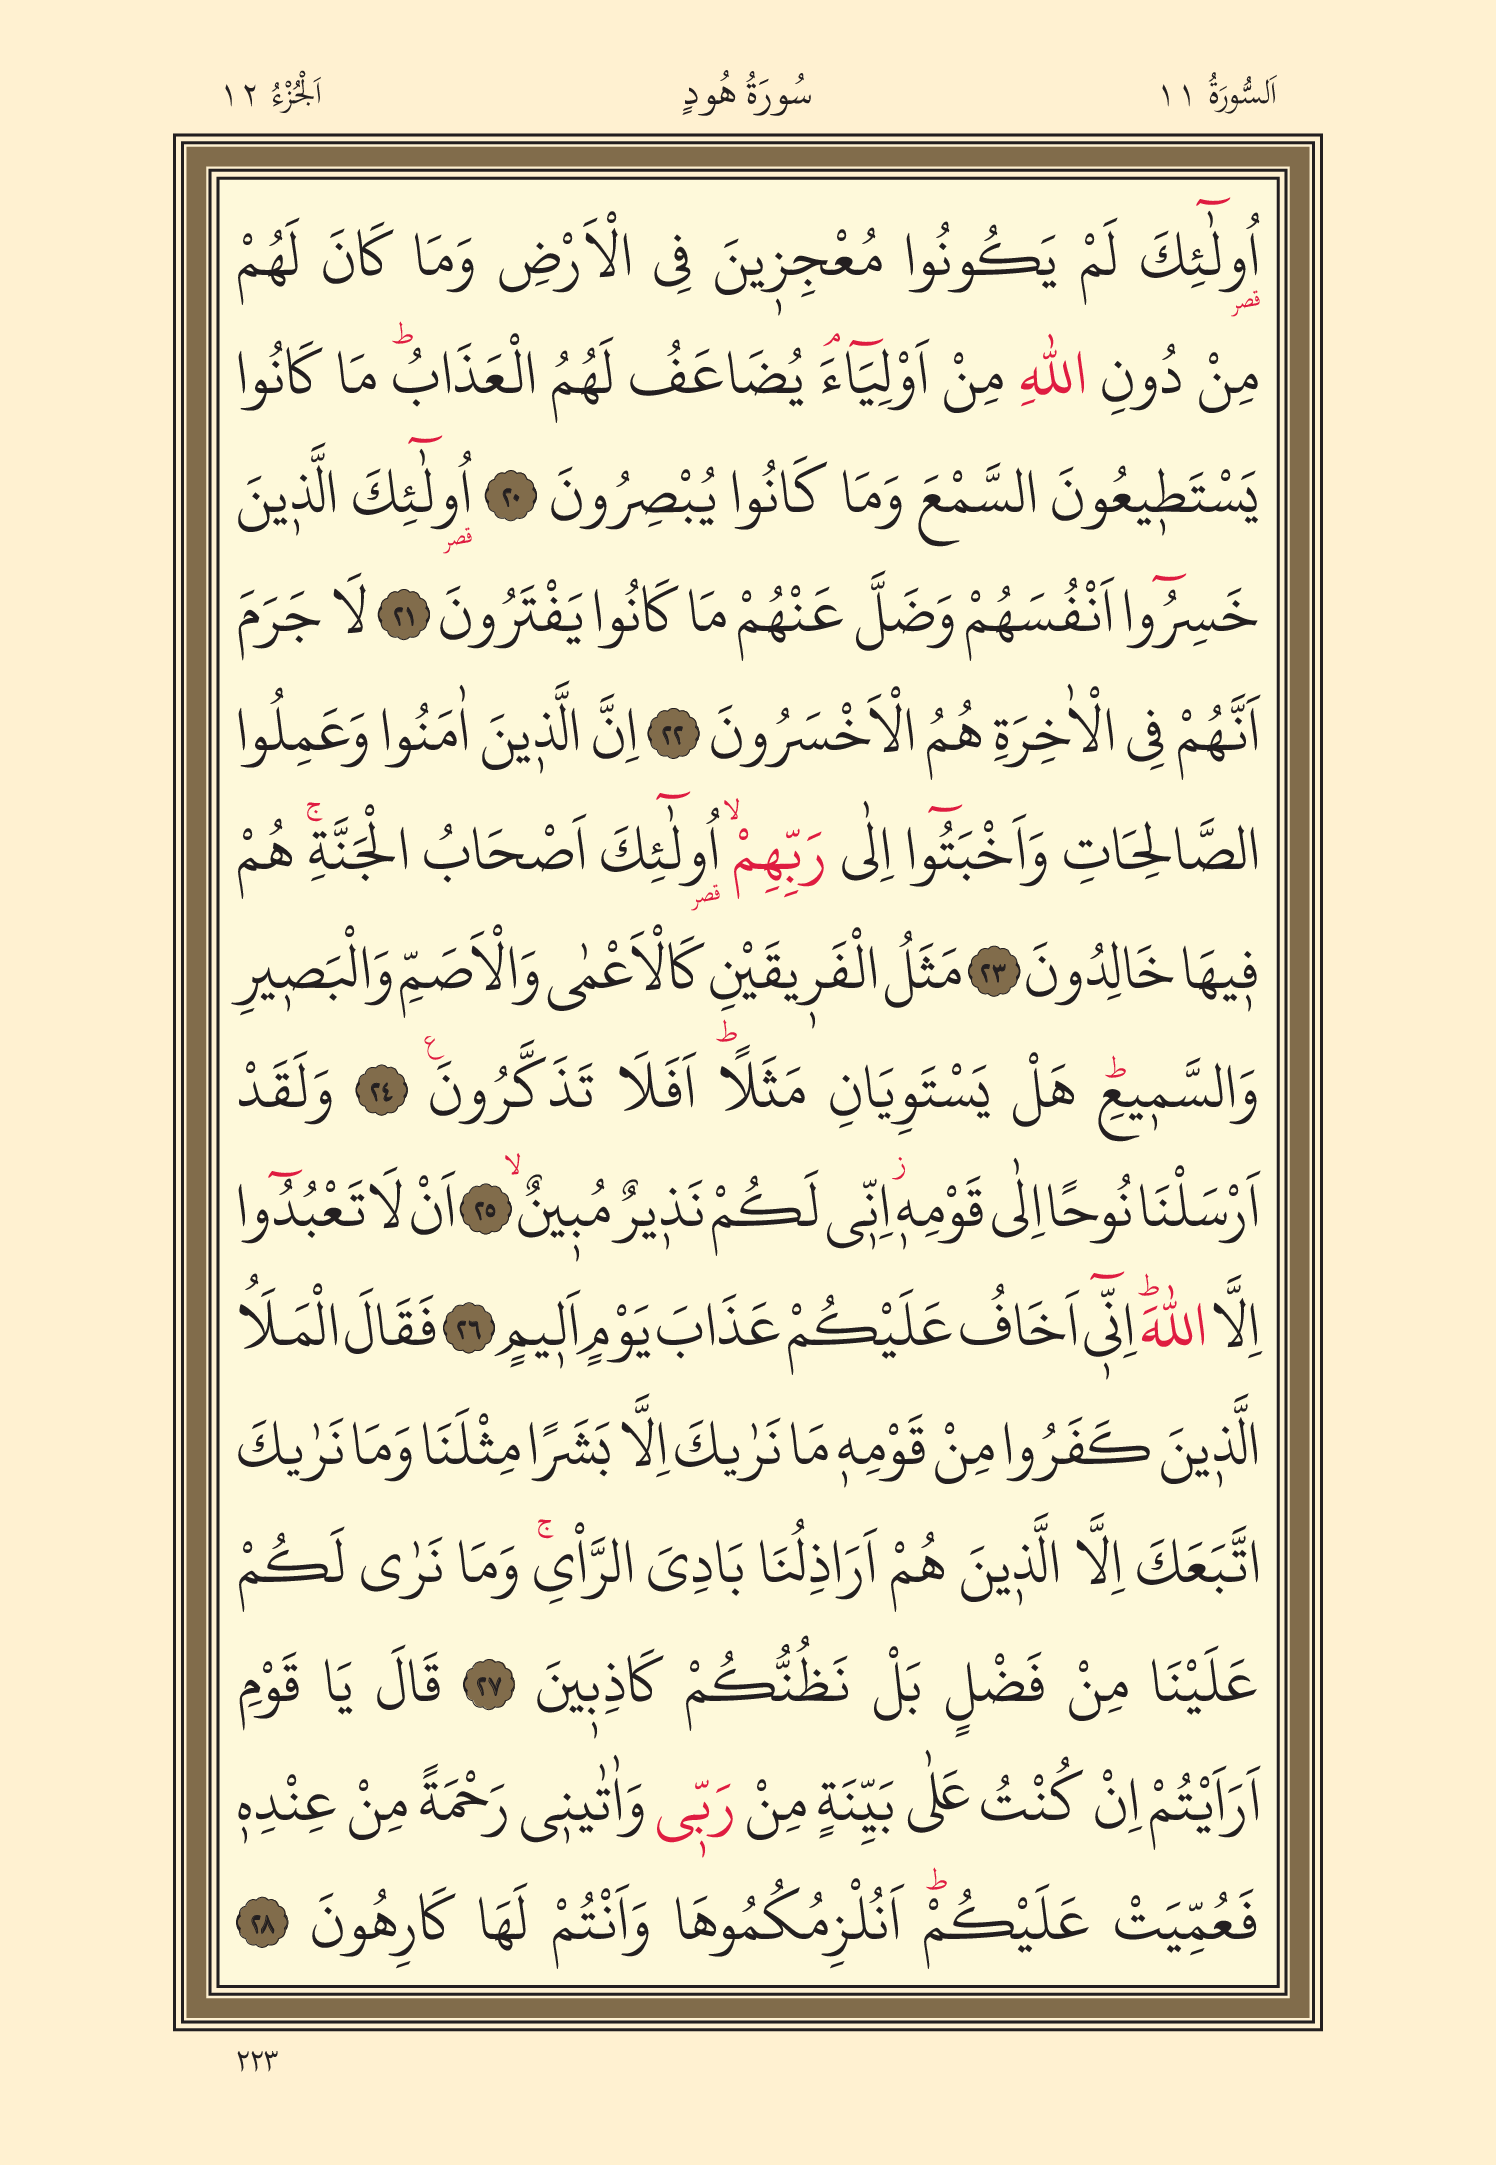 اَلسُّورَةُ ١١ سُورَةُ هُودٍ اَلْجُزْءُ ١٢
اُو۬لٰٓئِكَ لَمْ يَكُونُوا مُعْجِز۪ينَ فِى الْاَرْضِ وَمَا كَانَ لَهُمْ
قصر
مِنْ دُونِ اللّٰهِ مِنْ اَوْلِيَٓاءَۢ يُضَاعَفُ لَهُمُ الْعَذَابُۜ مَا كَانُوا
يَسْتَط۪يعُونَ السَّمْعَ وَمَا كَانُوا يُبْصِرُونَ ﴿٢٠﴾ اُو۬لٰٓئِكَ الَّذ۪ينَ
قصر
خَسِرُٓوا اَنْفُسَهُمْ وَضَلَّ عَنْهُمْ مَا كَانُوا يَفْتَرُونَ ﴿٢١﴾ لَا جَرَمَ
اَنَّهُمْ فِى الْاٰخِرَةِ هُمُ الْاَخْسَرُونَ ﴿٢٢﴾ اِنَّ الَّذ۪ينَ اٰمَنُوا وَعَمِلُوا
الصَّالِحَاتِ وَاَخْبَتُٓوا اِلٰى رَبِّهِمْۙ اُو۬لٰٓئِكَ اَصْحَابُ الْجَنَّةِۚ هُمْ
قصر
ف۪يهَا خَالِدُونَ ﴿٢٣﴾ مَثَلُ الْفَر۪يقَيْنِ كَالْاَعْمٰى وَالْاَصَمِّ وَالْبَص۪يرِ
وَالسَّم۪يعِۜ هَلْ يَسْتَوِيَانِ مَثَلًاۜ اَفَلَا تَذَكَّرُونَ ع ﴿٢٤﴾ وَلَقَدْ
اَرْسَلْنَا نُوحًا اِلٰى قَوْمِه۪ۘ اِنّ۪ى لَكُمْ نَذ۪يرٌ مُب۪ينٌۙ ﴿٢٥﴾ اَنْ لَا تَعْبُدُٓوا
اِلَّا اللّٰهَۜ اِنّ۪ٓى اَخَافُ عَلَيْكُمْ عَذَابَ يَوْمٍ اَل۪يمٍ ﴿٢٦﴾ فَقَالَ الْمَلَاُ
الَّذ۪ينَ كَفَرُوا مِنْ قَوْمِه۪ مَا نَرٰيكَ اِلَّا بَشَرًا مِثْلَنَا وَمَا نَرٰيكَ
اتَّبَعَكَ اِلَّا الَّذ۪ينَ هُمْ اَرَاذِلُنَا بَادِىَ الرَّاْىِۚ وَمَا نَرٰى لَكُمْ
عَلَيْنَا مِنْ فَضْلٍ بَلْ نَظُنُّكُمْ كَاذِب۪ينَ ﴿٢٧﴾ قَالَ يَا قَوْمِ
اَرَاَيْتُمْ اِنْ كُنْتُ عَلٰى بَيِّنَةٍ مِنْ رَبّ۪ى وَاٰتٰين۪ى رَحْمَةً مِنْ عِنْدِه۪
فَعُمِّيَتْ عَلَيْكُمْۜ اَنُلْزِمُكُمُوهَا وَاَنْتُمْ لَهَا كَارِهُونَ ﴿٢٨﴾
٢٢٣